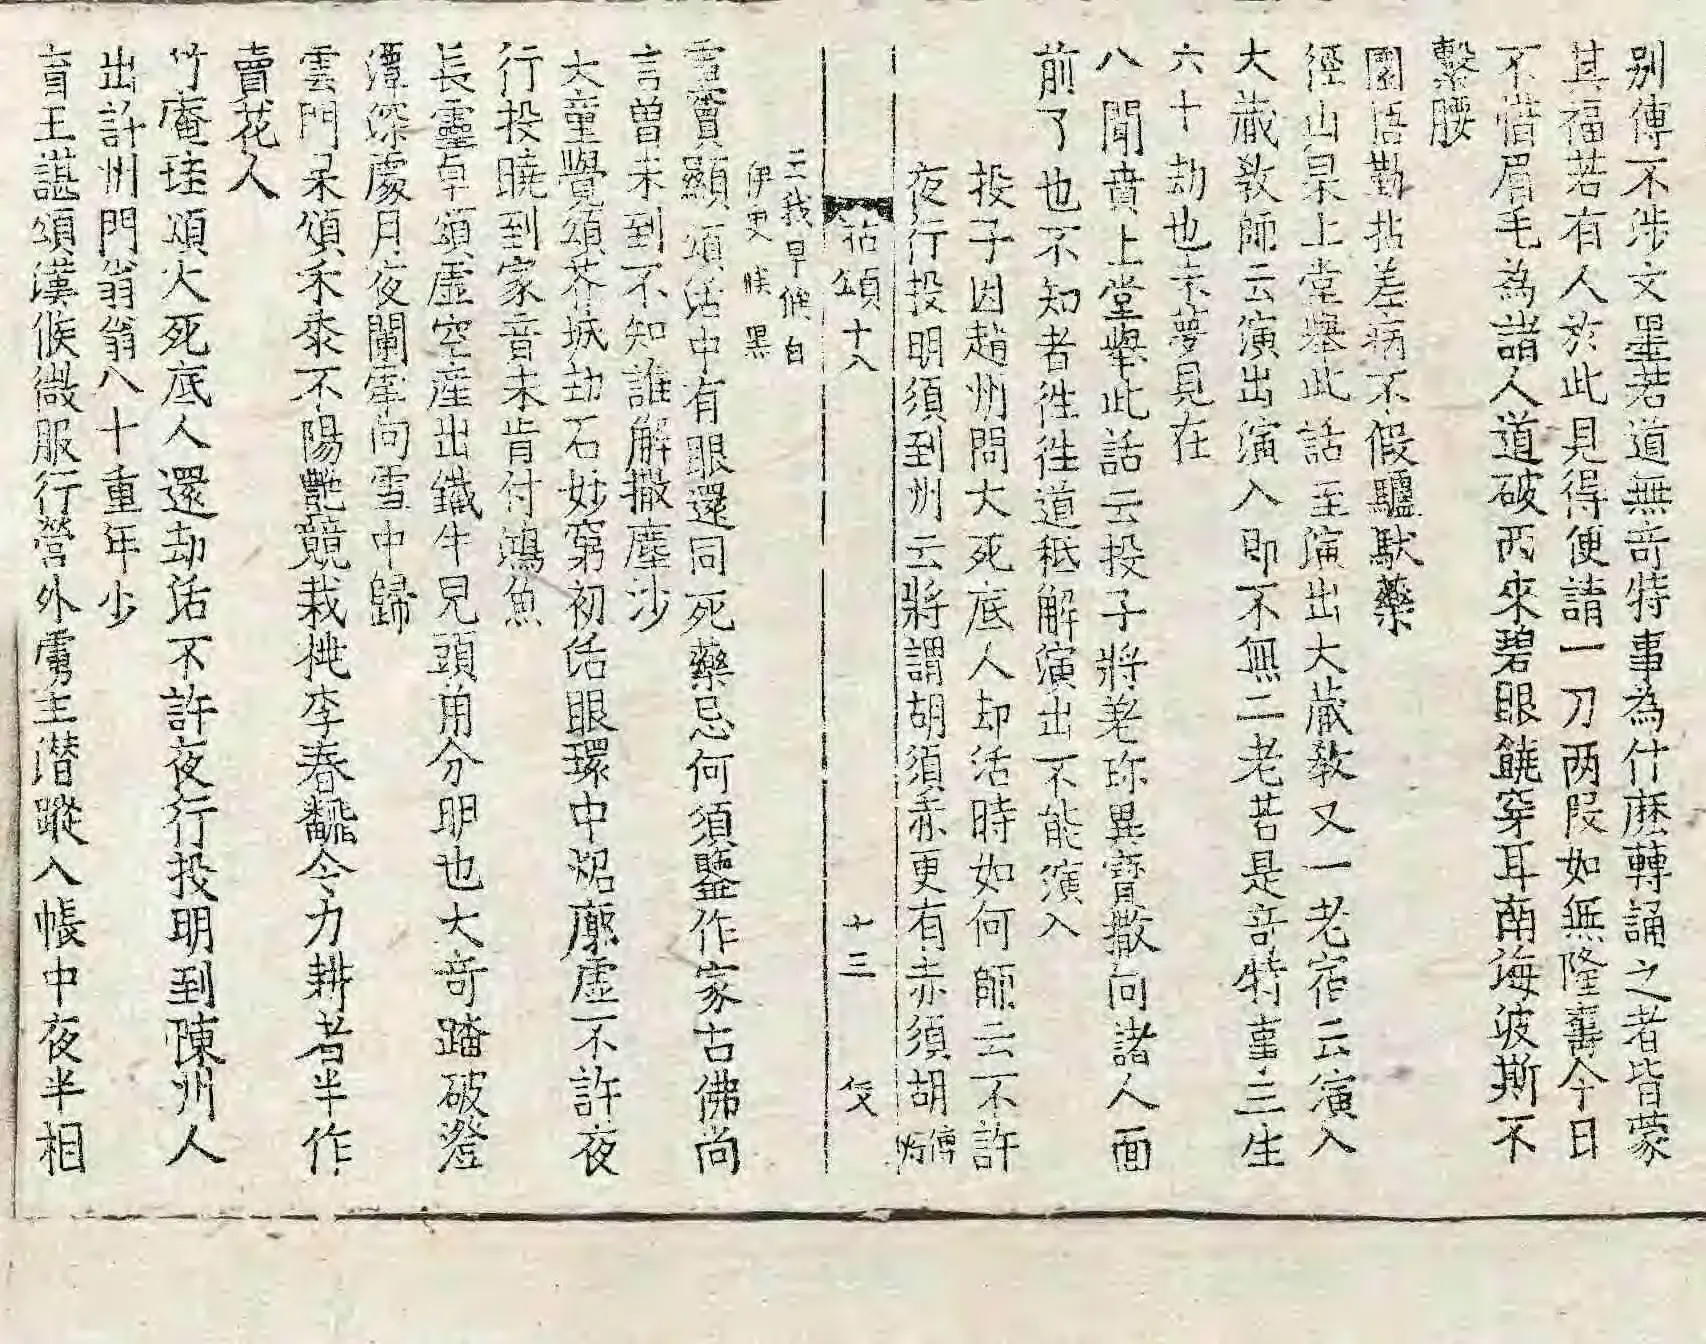 别傳不涉文墨若道無竒特事為什麽轉誦之者皆蒙
其福若有人於此見得便請一刀两段如無隆壽今日
不惜眉毛為諸人道破而來碧眼鐃穿耳南海波斯不
繫腰
圜悟勤拈差病不假驢馱藥
徑山杲上堂舉此話至演出大藏教又一老宿云演入
大藏教師云演出演入即不無二老若是竒特事三生
六十劫也未夢見在
八聞賁上堂舉此話云投子將差珎異寶撒向諸人面
前了也不知者徃徃道秪解演出不能演入
投子因趙州問大死底人却活時如何師云不許
夜行投明須到州云將謂胡須赤更有赤須胡
三我早候白
伊更候黑
拈頌十八
十三
雪竇顯頌活中有眼還同死藥忌何須鑒作家古佛尚
言曽未到不知誰解撒塵沙
大童覺頌芥城劫石妙窮初活眼環中炤廓虛不許夜
行投曉到家音未肯付鴻魚
長靈卓頌虛空産出鐵牛兒頭角分明也大竒踏破澄
潭深處月夜闌牽向雪中歸
雲門杲頌禾黍不陽艶競栽桃李春飜令力耕者半作
賣花人
竹庵珪頌大死底人還却活不許夜行投明到陳州人
出許州門翁翁八十重年少
育王諶頌漢候微服行營外虜主潜蹤入帳中夜半相